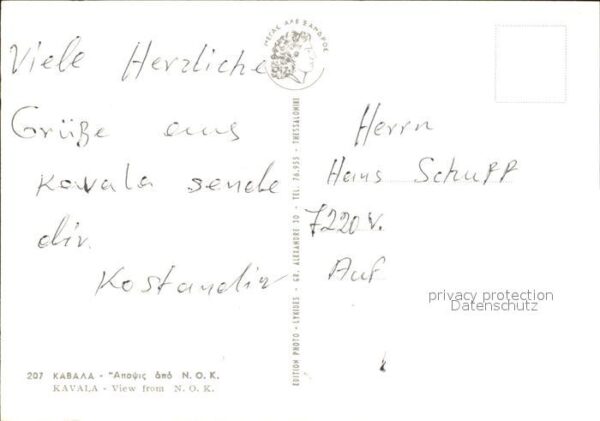 ΜΕΓΑΣ ΑΛΕΞΑΝΔΡΟΣ
Viele Herzliche
Grüße aus
Kavala sende
dir.
Kostandir
Herrn
Hans Schupp
7220 V.
Auf
privacy protection
Datenschutz
EDITION PHOTO - LYKIDES - GR. ALEXANDRE 30 - TEL. 76.955 - THESSALONIKI
207 ΚΑΒΑΛΑ - Ἄποψις ἀπό Ν. Ο. Κ.
KAVALA - View from N. O. K.